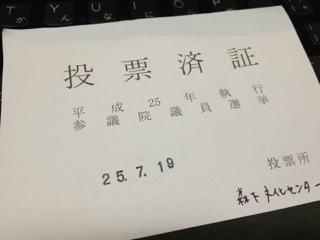 T Y U I O P
投票済証
平成25年執行
参議院議員選挙
25.7.19
投票所
森下文化センター